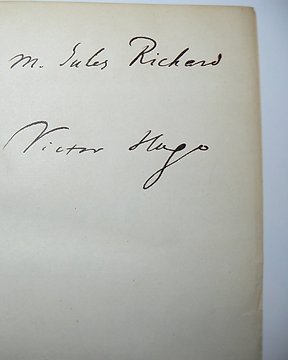 M. Jules Richard
Victor Hugo